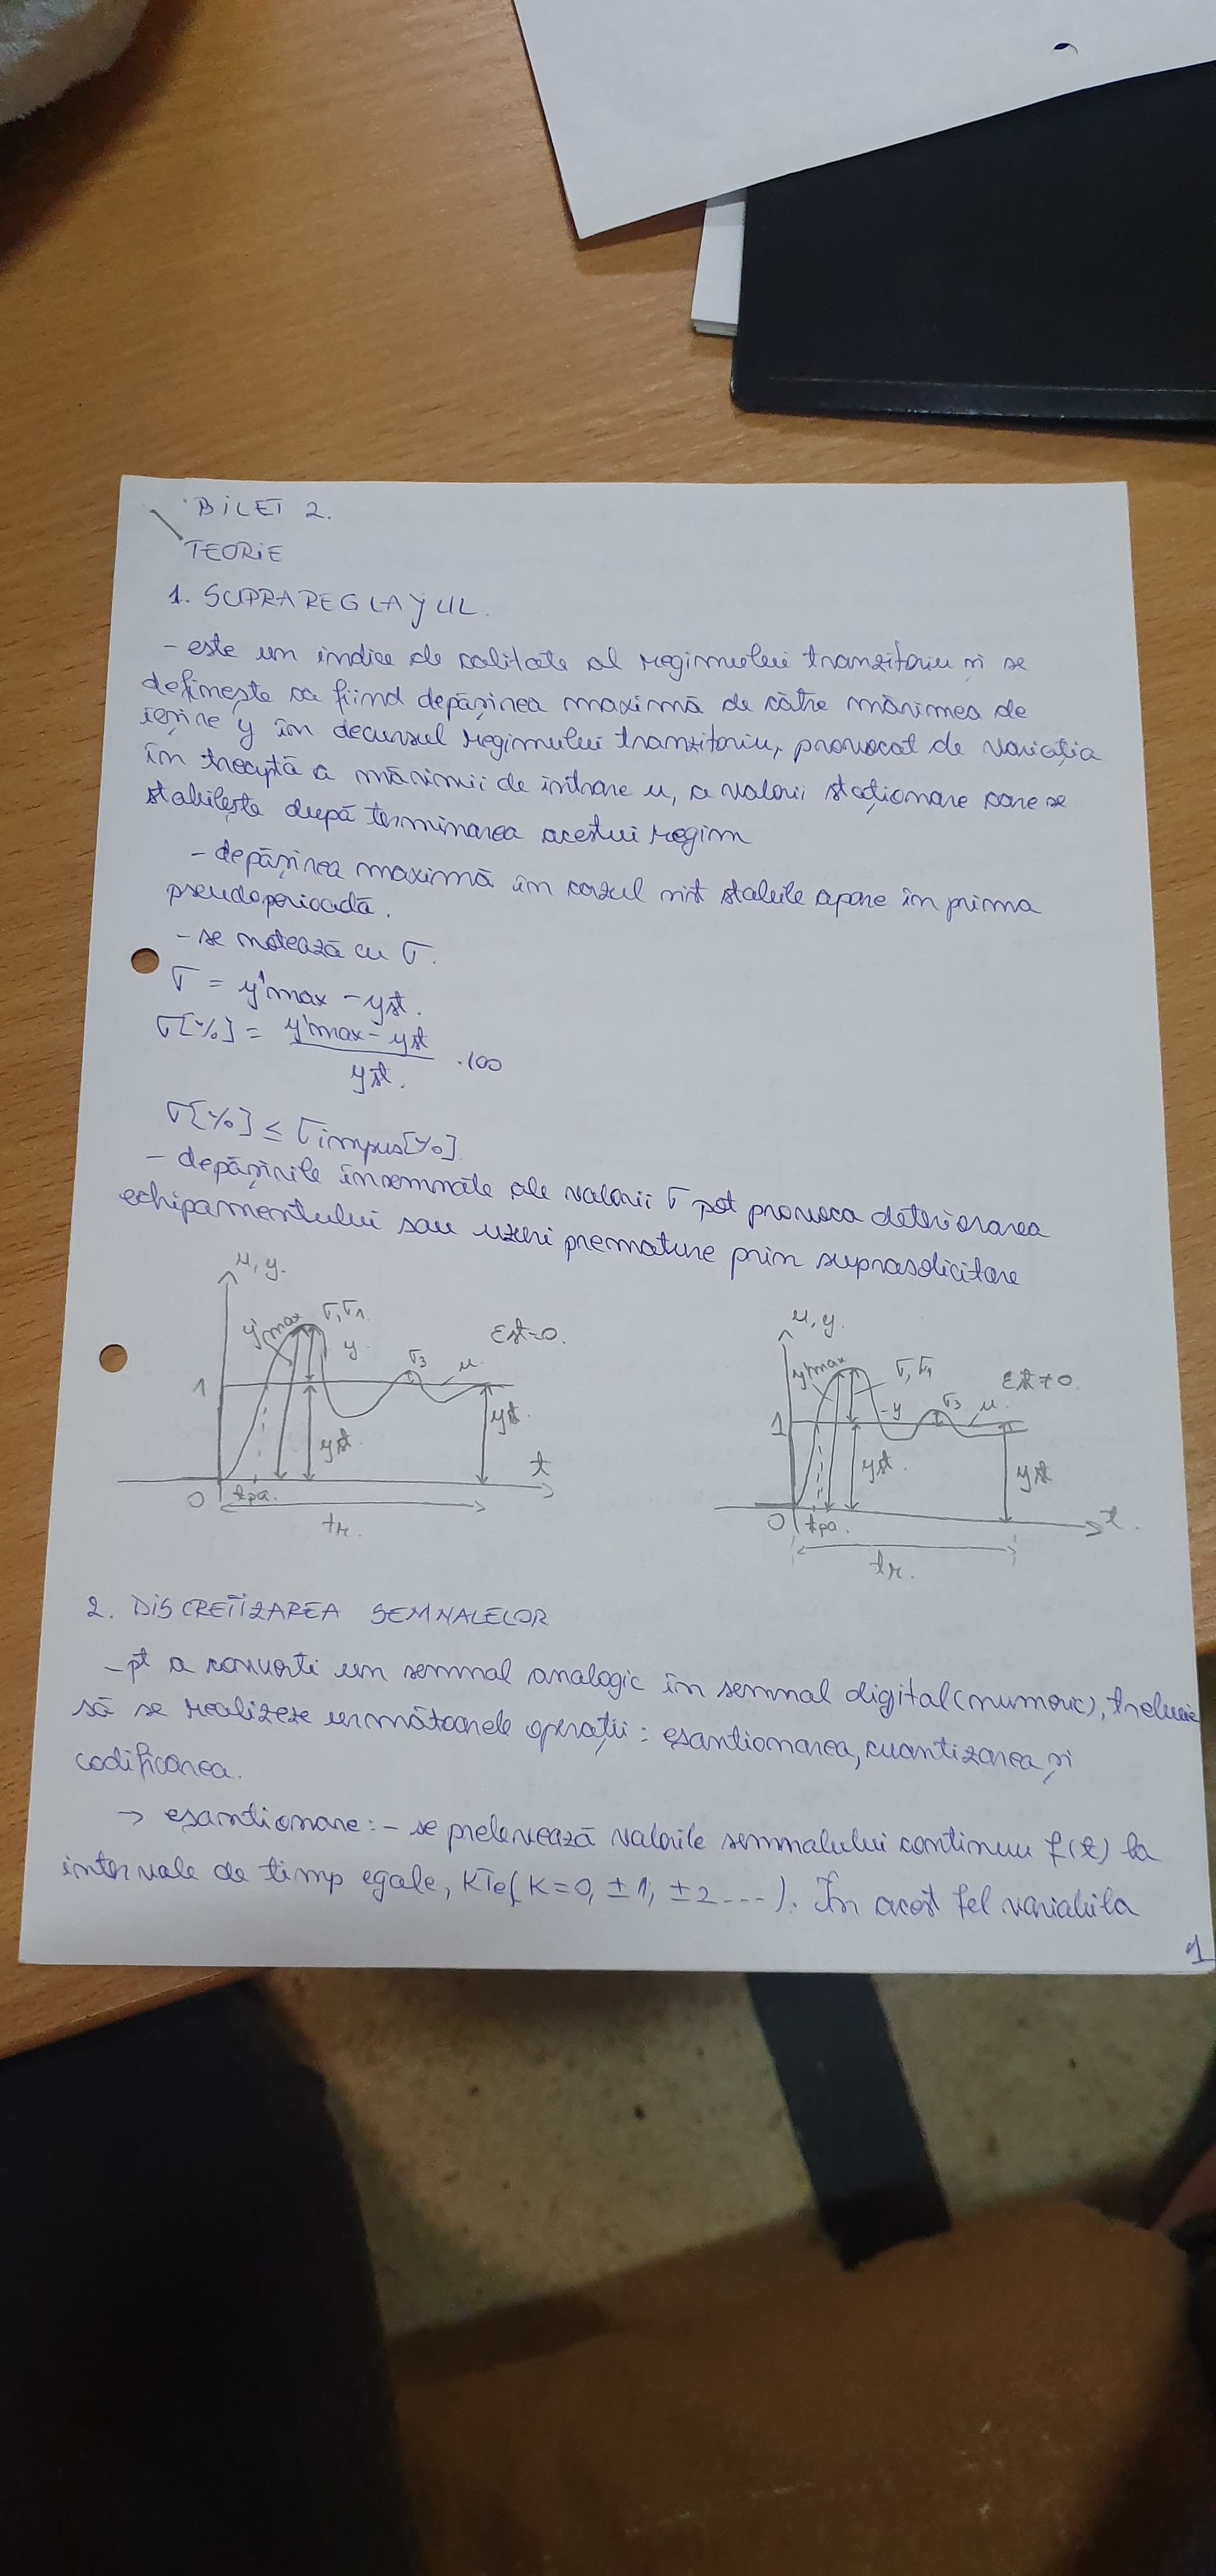 BILET 2.
TEORIE
1. SUPRAREGLAJUL.
- este un indice de calitate al regimului tranzitoriu și se
definește ca fiind depășirea maximă de către mărimea de
ieșire y în decursul regimului tranzitoriu, provocat de variația
în treaptă a mărimii de intrare u, a valorii staționare care se
stabilește după terminarea acestui regim
- depășirea maximă în cazul sist stabile apare în prima
pseudoperioadă.
- se notează cu σ.
σ = y'max - yst.
σ[%] = y'max - yst / yst. · 100
σ[%] ≤ σimpus[%]
- depășirile însemnate ale valorii σ pot provoca deteriorarea
echipamentului sau uzuri premature prin suprasolicitare
u, y.
y'max σ, σ1
y
σ3
u
εst=0.
1
yst.
yst.
t
0 tpa.
tr.
u, y.
y'max σ, σ1
y
σ3
u
εst≠0
1
yst.
yst
t.
0 tpa.
tr.
2. DISCRETIZAREA SEMNALELOR
- pt a converti un semnal analogic în semnal digital (numeric), trebuie
să se realizeze următoarele operații: eșantionarea, cuantizarea și
codificarea.
→ eșantionare: - se prelevează valorile semnalului continuu f(t) la
intervale de timp egale, KTe( K=0, ±1, ±2 ---). În acest fel variabila
1